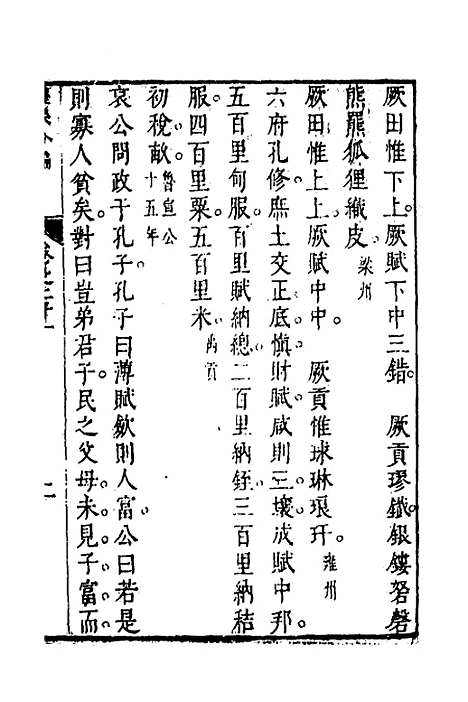 厥田惟下上。厥賦下中三錯　厥貢璆鐵銀鏤砮磬
熊羆狐狸織皮 梁州
厥田惟上上。厥賦中中　厥貢惟球琳琅玕。雍州
六府孔修。庶土交正。底慎財賦。咸則三壤。成賦中邦。
五百里甸服。百里賦納總。二百里納銍。三百里納秸
服。四百里粟。五百里米。禹貢
初稅畝。魯宣公十五年
哀公問政于孔子。孔子曰薄賦斂則人富。公曰若是
則寡人貧矣。對曰豈弟君子民之父母。未見子富而